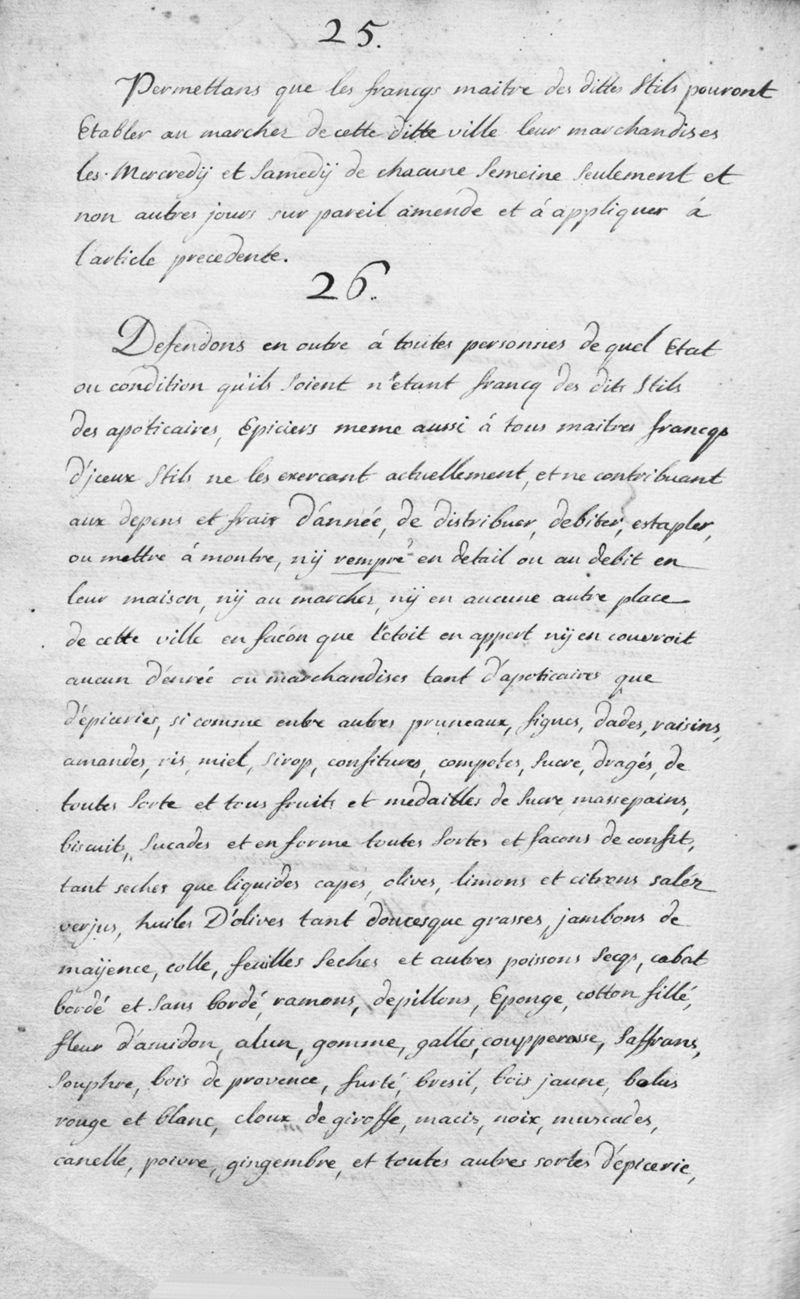 25.
Permettans que les francqs maitre des dittes Stils pouront
Etabler au marchez de cette ditte ville leur marchandises
les Mercredÿ et Samedÿ de chacune Semeine Seulement et
non autres jours sur pareil amende et á appliquer á
l'article precedente.
26.
Defendons en outre á toutes personnes de quel Etat
ou condition qu'ils Soient n'etant francq des dits Stils
des apoticaires, Epiciers meme aussi á tous maitres francqs
d'jceux Stils ne les exercant actuellement, et ne contribuant
aux depens et frais d'année, de distribuer, debiter, estapler,
ou mettre á montre, nÿ rempre en detail ou au debit en
leur maison, nÿ au marchez, nÿ en aucune autre place
de cette ville en facón que l'etoit en appert nÿ en couvroit
aucun d'enrée ou marchandises tant d'apoticaires que
d'épiceries, si comme entre autres pruneaux, figues, dades, raisins,
amandes, ris, miel, Sirop, confitures, compotes, Sucre, dragés, de
toutes Sorte et tous fruits et medailles de Sucre massepains,
biscuit, Sucades et en forme toutes Sortes et facons de confit,
tant seches que liquides capes, olives, limons et citrons saléz
verjus, huiles D'olives tant doucesque grasses, jambons de
maÿence, colle, feuilles Seches et autres poissons Secqs, cabat
bordé et Sans bordé, ramons, depillons, Eponge, cotton fillé,
fleur d'amidon, alun, gomme, galles, coupperosse, Saffrans,
Souphre, bois de provence, furté, bresil, bois jaune, bolus
rouge et blanc, cloux de giroffe, macis, noix, muscades,
canelle, poivre, gingembre, et toutes autres sortes d'épicerie,